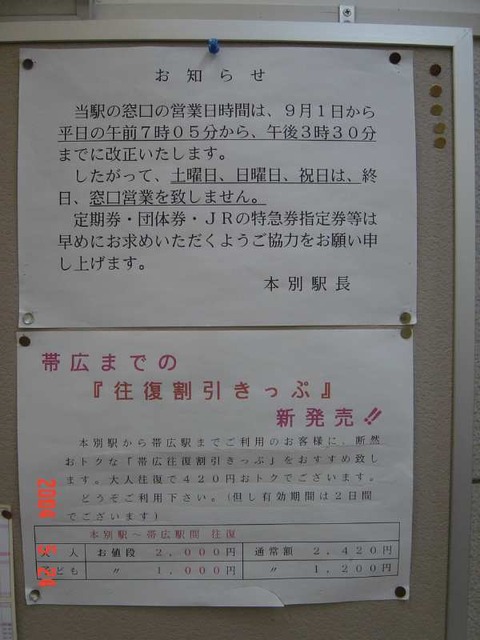 お知らせ
当駅の窓口の営業日時間は、９月１日から
平日の午前７時０５分から、午後３時３０分
までに改正いたします。
したがって、土曜日、日曜日、祝日は、終
日、窓口営業を致しません。
定期券・団体券・ＪＲの特急券指定券等は
早めにお求めいただくようご協力をお願い申
し上げます。
本別駅長
帯広までの
『往復割引きっぷ』
新発売!!
本別駅から帯広駅までご利用のお客様に、断然
おトクな「帯広往復割引きっぷ」をおすすめ致し
ます。大人往復で４２０円おトクでございます。
どうぞご利用下さい。(但し有効期間は２日間
でございます)
本別駅～帯広駅間 往復
大人 お値段 ２,０００円 通常額 ２,４２０円
こども 〃 １,０００円 〃 １,２００円